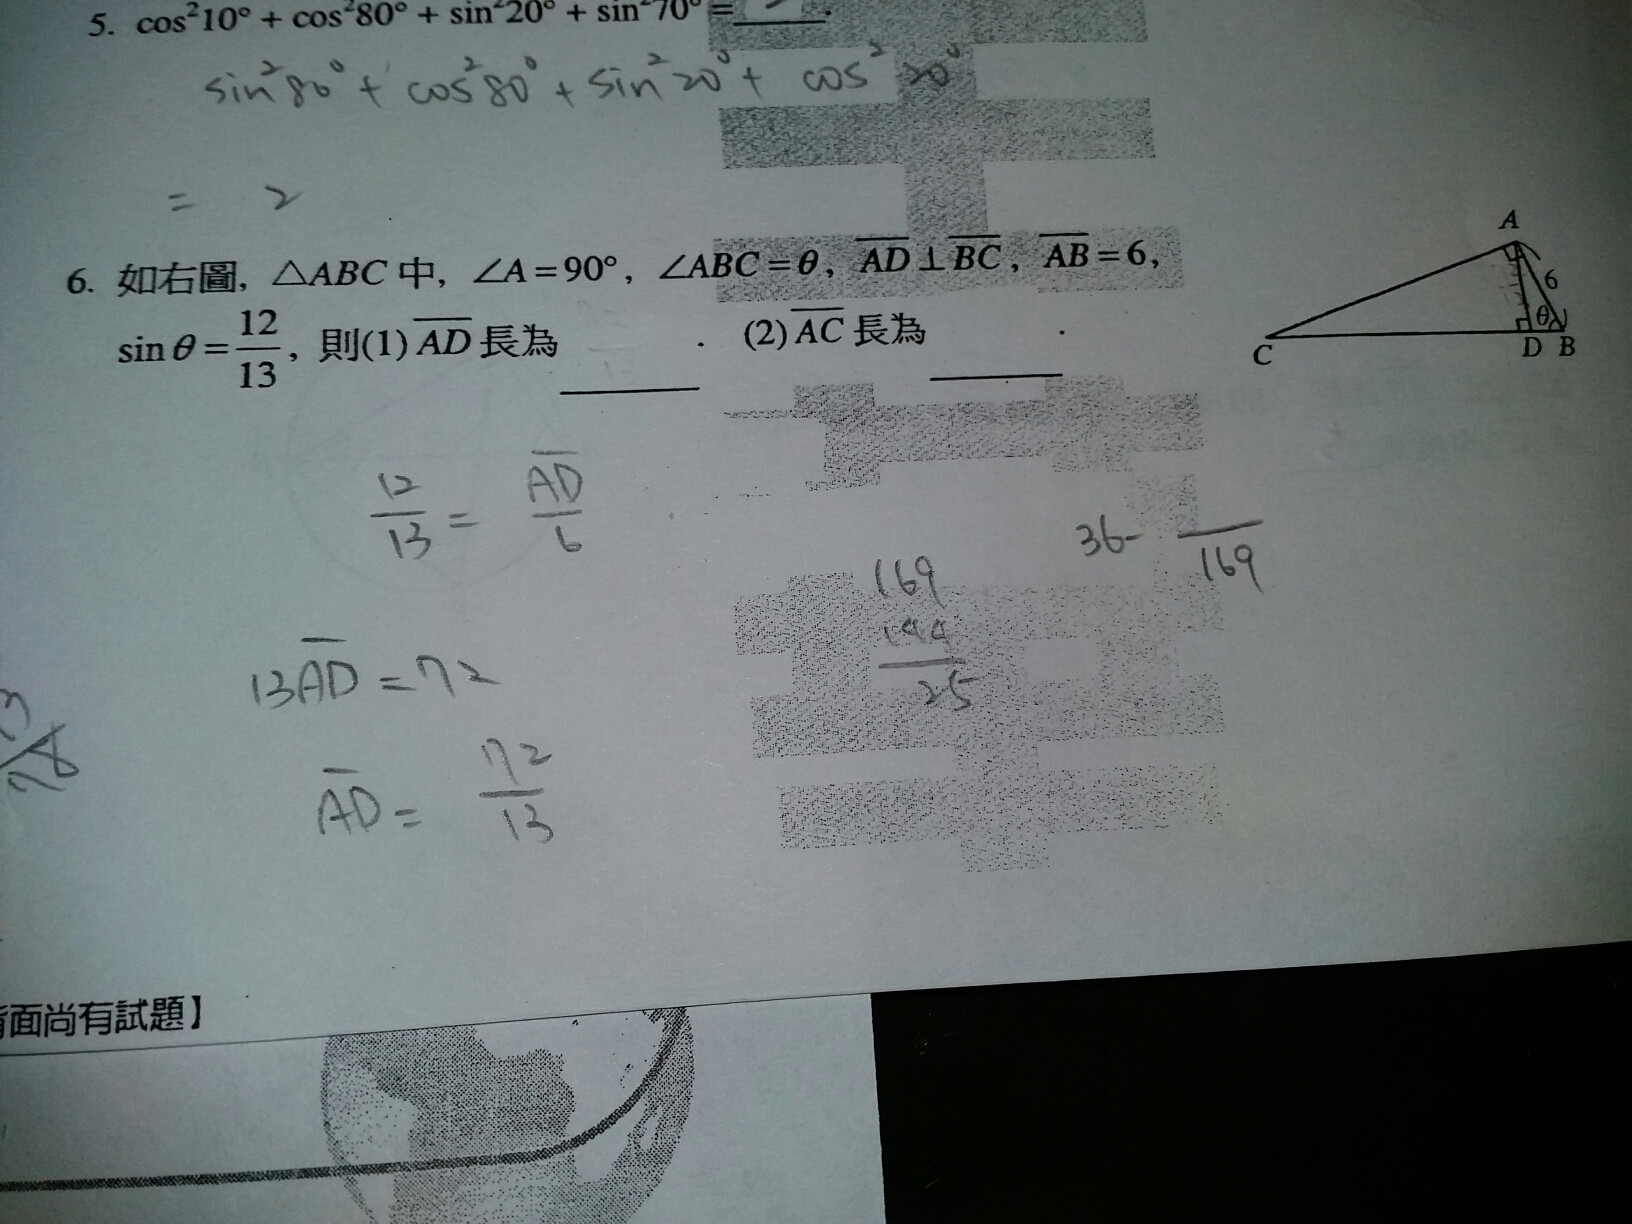 5. cos²10° + cos²80° + sin²20° + sin²70° =
sin²80° + cos²80° + sin²20° + cos²20°
= 2
6. 如右圖, △ABC 中, ∠A=90°, ∠ABC=θ, AD⊥BC, AB=6,
sinθ=12/13, 則(1)AD長為______. (2)AC長為______.
A
6
θ
C
D B
12/13 = AD/6
36- /169
169
144
25
13AD=72
AD= 72/13
面尚有試題】